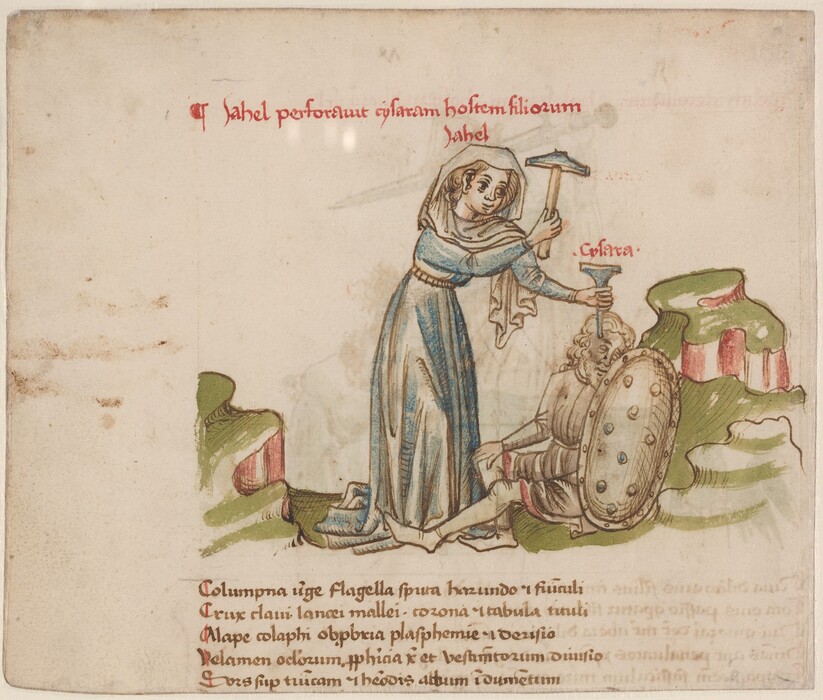 ¶ Jahel perforavit cysaram hostem filiorum
Jahel
· Cysara ·
Columpna ũge flagella sputa harundo ⁊ funculi
Crux claui lancei mallei · corona ⁊ tabula tituli
Alape colaphi obpbria plasphemie ⁊ derisio
Velamen oclorum, et vestimẽtorum diuisio
Sors sup tuĩcam ⁊ heodis album ĩdumẽtum